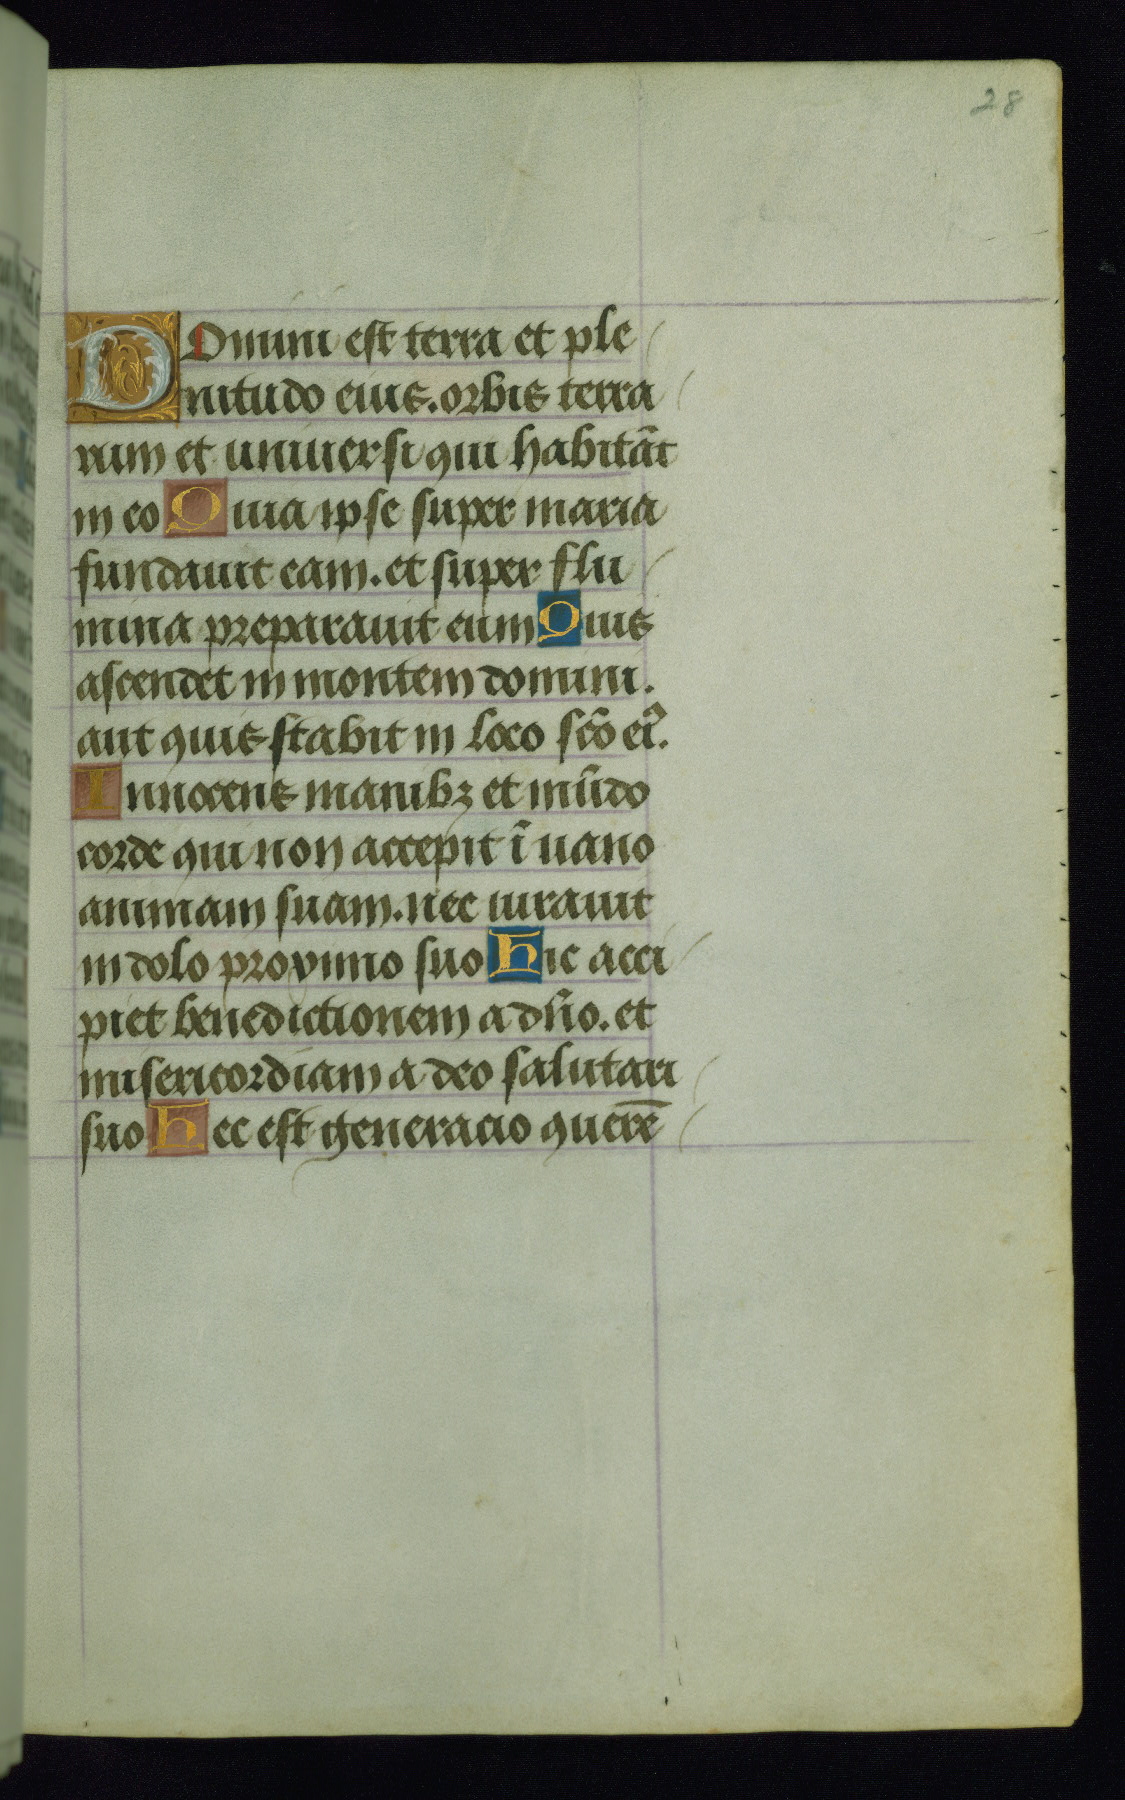 28
Domini est terra et ple
nitudo eius. orbis terra
rum et uniuersi qui habitāt
in eo Quia ipse super maria
fundauit eam. et super flu
mina preparauit eum Quis
ascendet in montem domini.
aut quis stabit in loco sc̄o ei᾽.
Innocens manibꝫ et mūdo
corde qui non accepit ī uano
animam suam. nec iurauit
in dolo proximo suo Hic acci
piet benedictionem a dn̄o. et
misericordiam a deo salutari
suo Hec est generacio querē